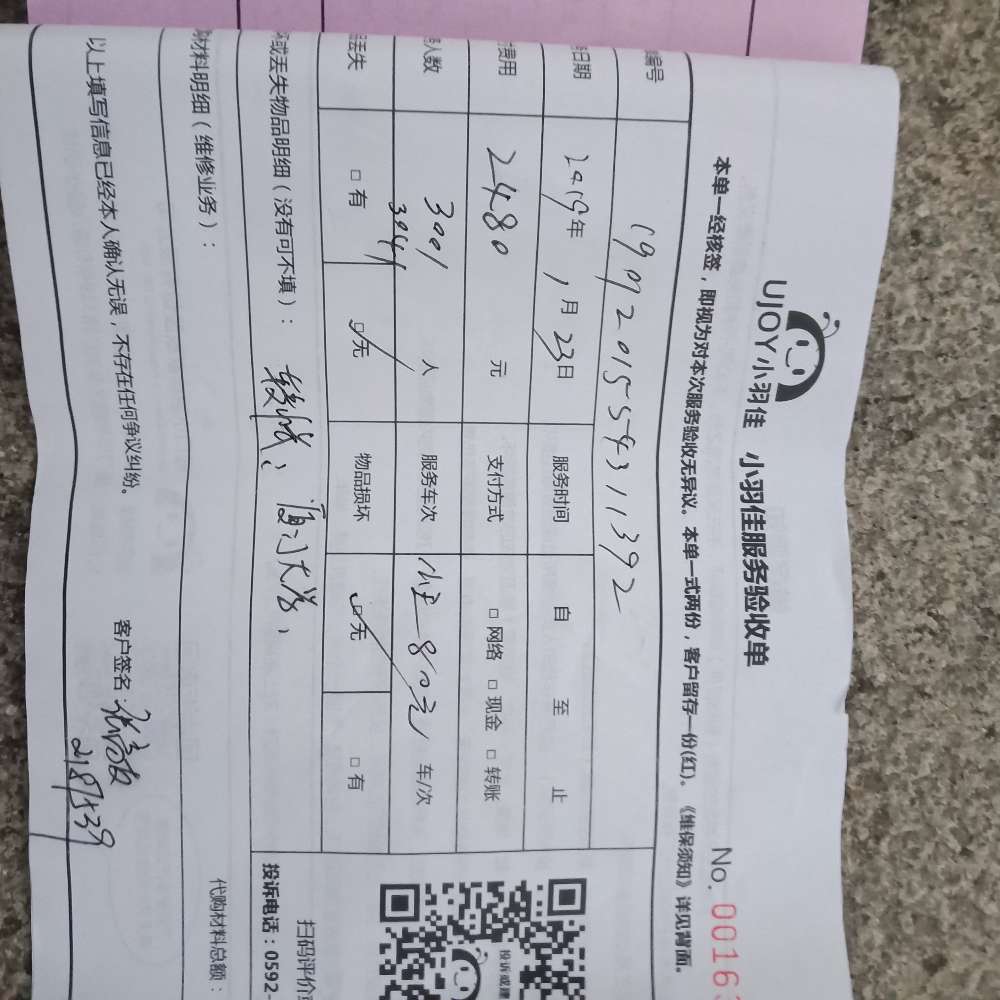 UJOY小羽佳 小羽佳服务验收单
No. 00163
本单一经核签，即视为对本次服务验收无异议。本单一式两份，客户留存一份(红)。《维保须知》详见背面。
编号 1909201554311392
日期 2019年1月23日 服务时间 自 至 止
费用 2480 元 支付方式 □网络 □现金 □转账
人数 3001 3044 人 服务车次 80元 车/次
丢失 □有 □无 物品损坏 □无 □有
或丢失物品明细（没有可不填）： 厦门大学
扫码评价
投诉电话：0592-
材料明细（维修业务）：
代购材料总额：
以上填写信息已经本人确认无误，不存在任何争议纠纷。
客户签名：
2187539